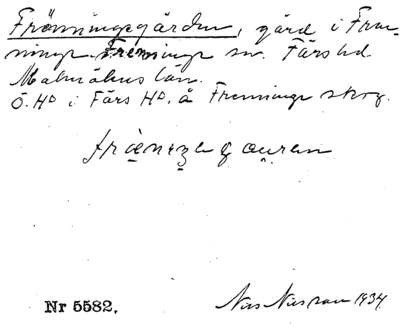 Frönningegården, gård i Fren-
ninge, Frenninge sn. Färs hd.
Malmöhus län.
Ö. HD i Färs HD. å Frenninge skog.
Nr 5582. Nils Nilsson 1934